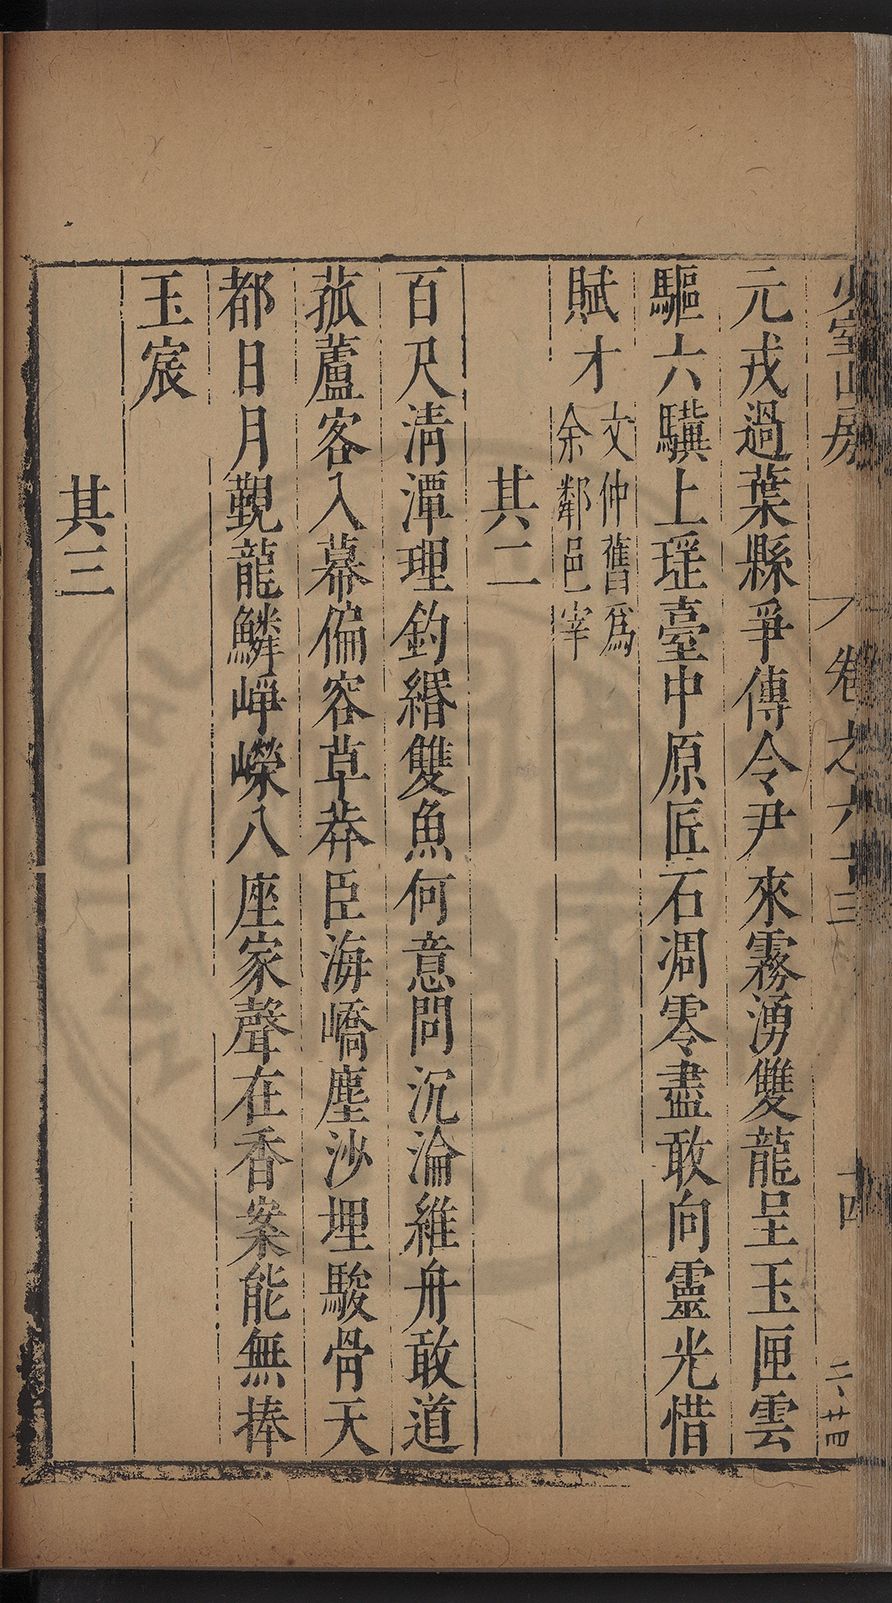 少室山房 卷之六十三 十四 二、廿四
元戎過葉縣爭傳令尹來霧湧雙龍呈玉匣雲
驅六驥上瑤臺中原匠石凋零盡敢向靈光惜
賦才 文仲舊爲
余鄰邑宰
其二
百尺淸潭理釣緡雙魚何意問沉淪維舟敢道
菰蘆客入幕偏容草莽臣海嶠塵沙埋駿骨天
都日月覲龍鱗崢嶸八座家聲在香案能無捧
玉宸
其三